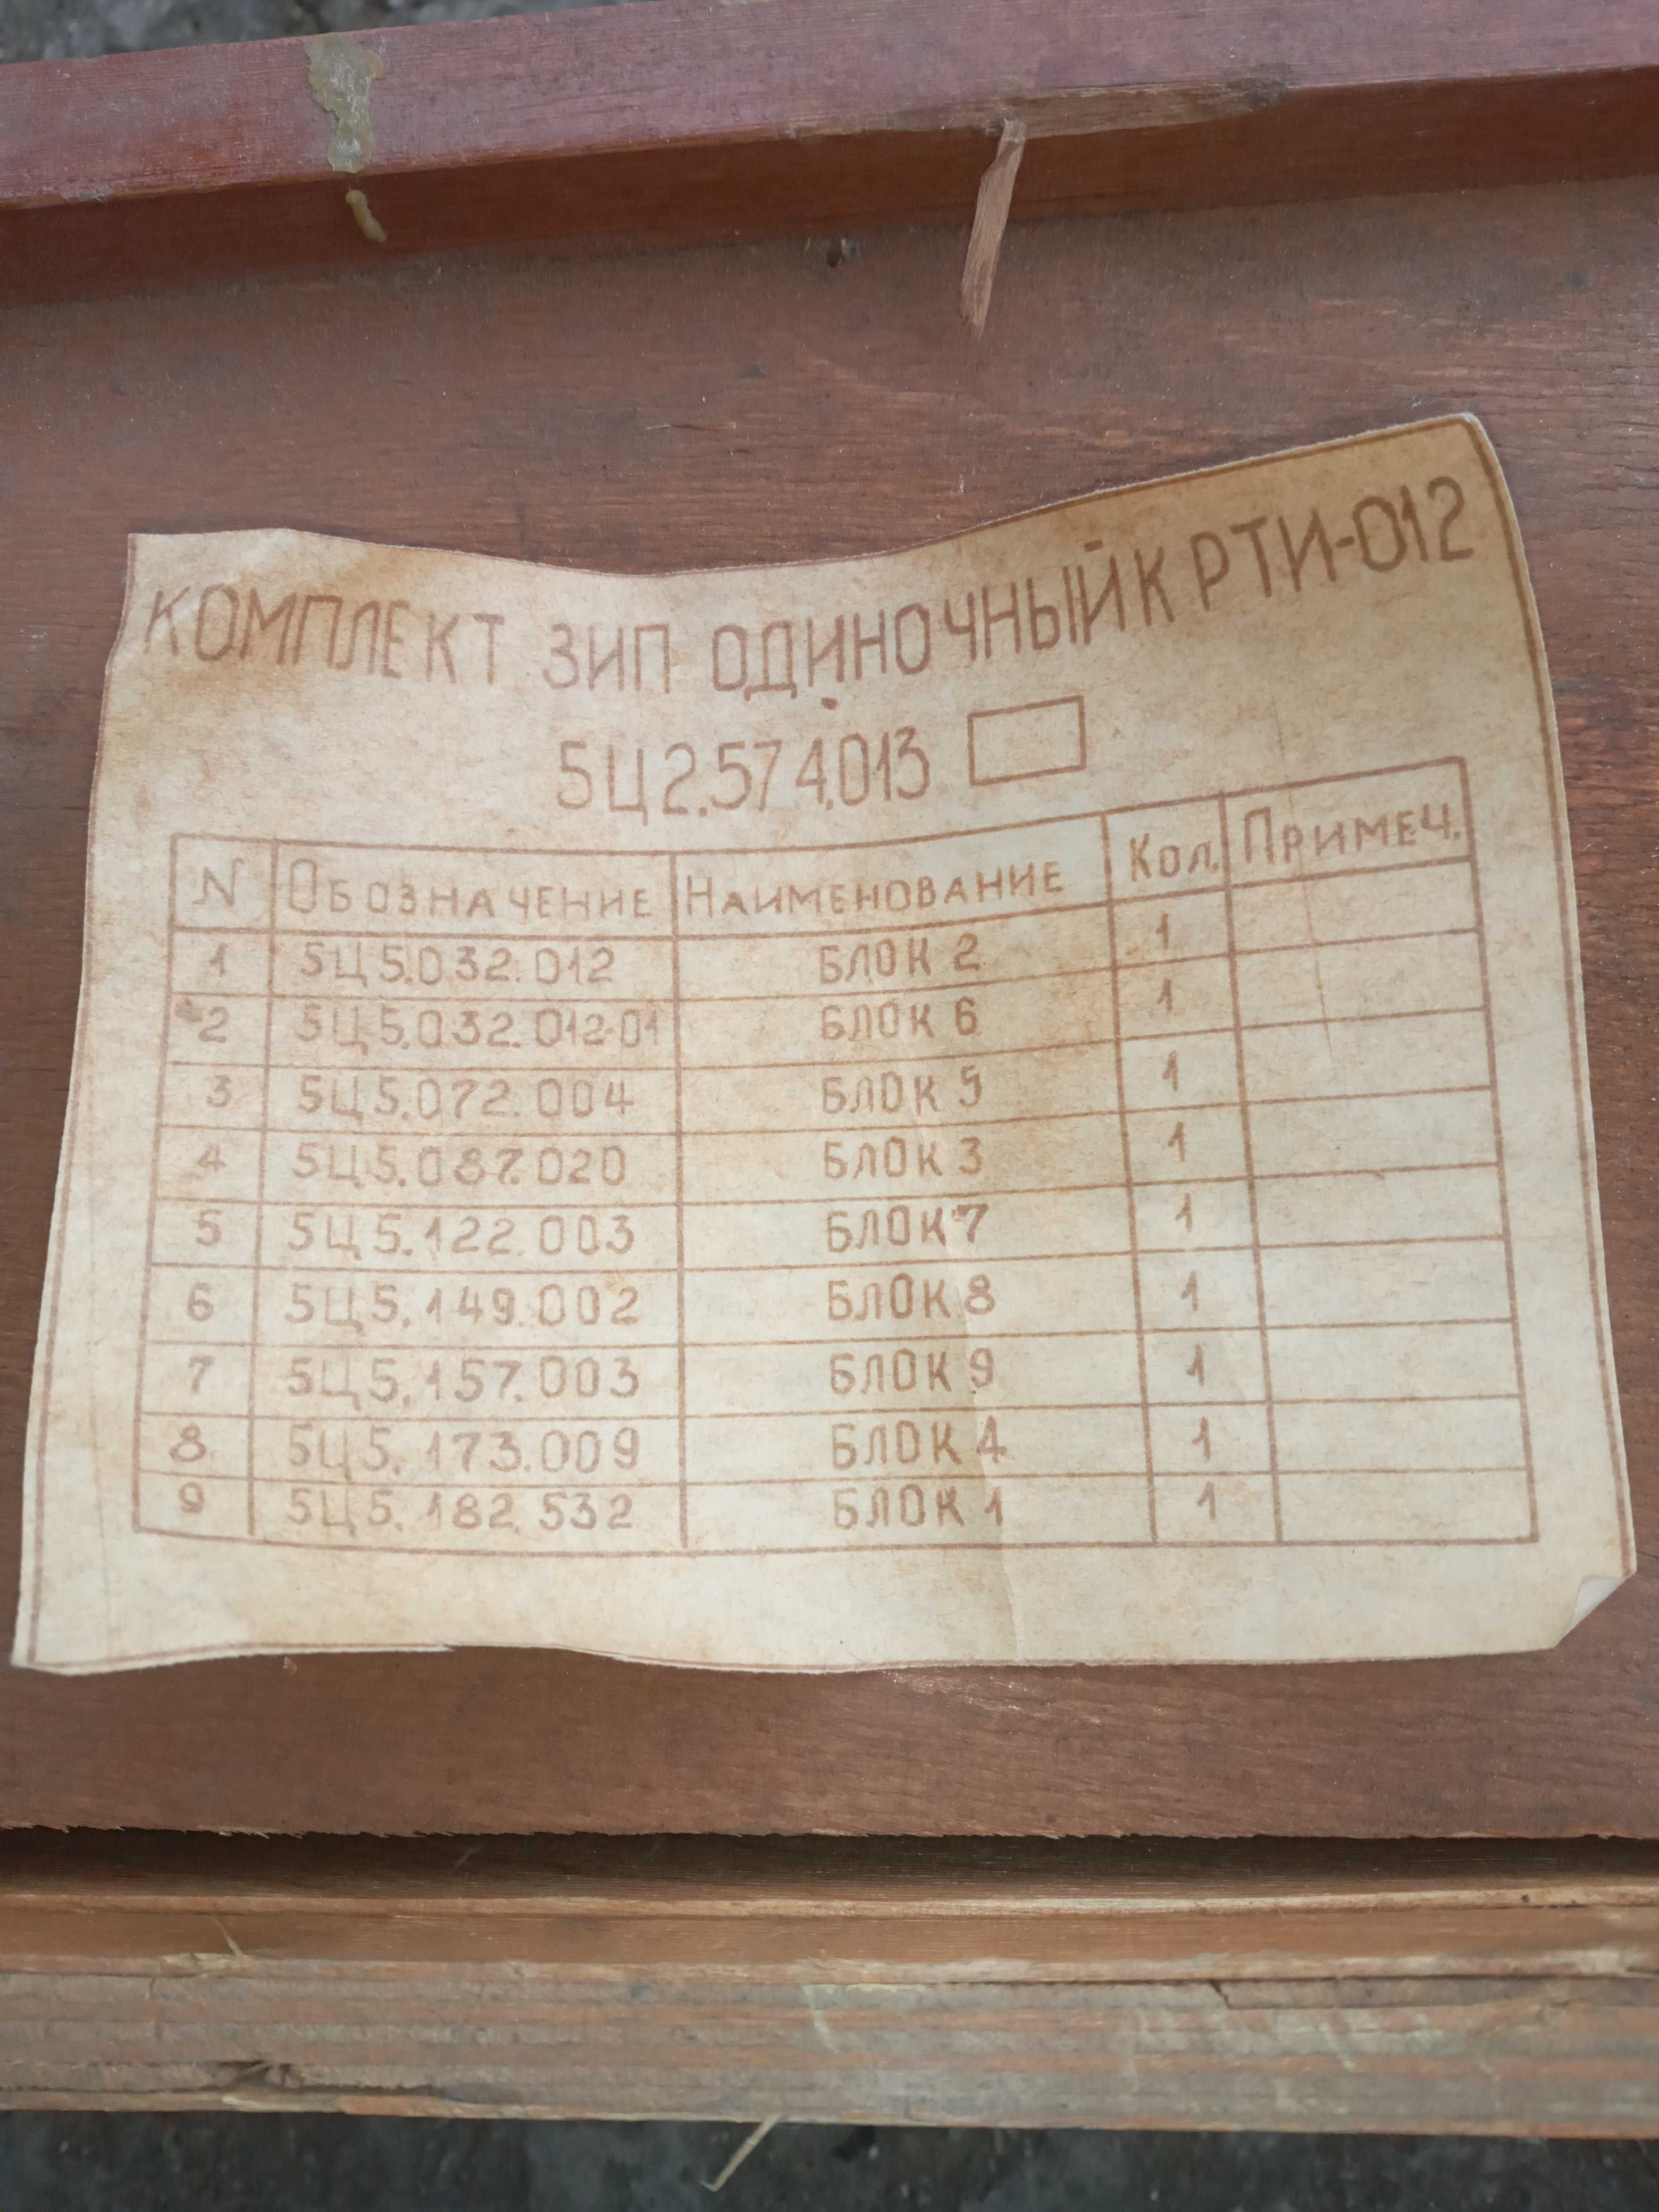 КОМПЛЕКТ ЗИП ОДИНОЧНЫЙ К РТИ-012
5Ц2.574.013
N Обозначение Наименование Кол. Примеч.
1 5Ц5.032.012 БЛОК 2 1
2 5Ц5.032.012-01 БЛОК 6 1
3 5Ц5.072.004 БЛОК 5 1
4 5Ц5.087.020 БЛОК 3 1
5 5Ц5.122.003 БЛОК 7 1
6 5Ц5.149.002 БЛОК 8 1
7 5Ц5.157.003 БЛОК 9 1
8 5Ц5.173.009 БЛОК 4 1
9 5Ц5.182.532 БЛОК 1 1